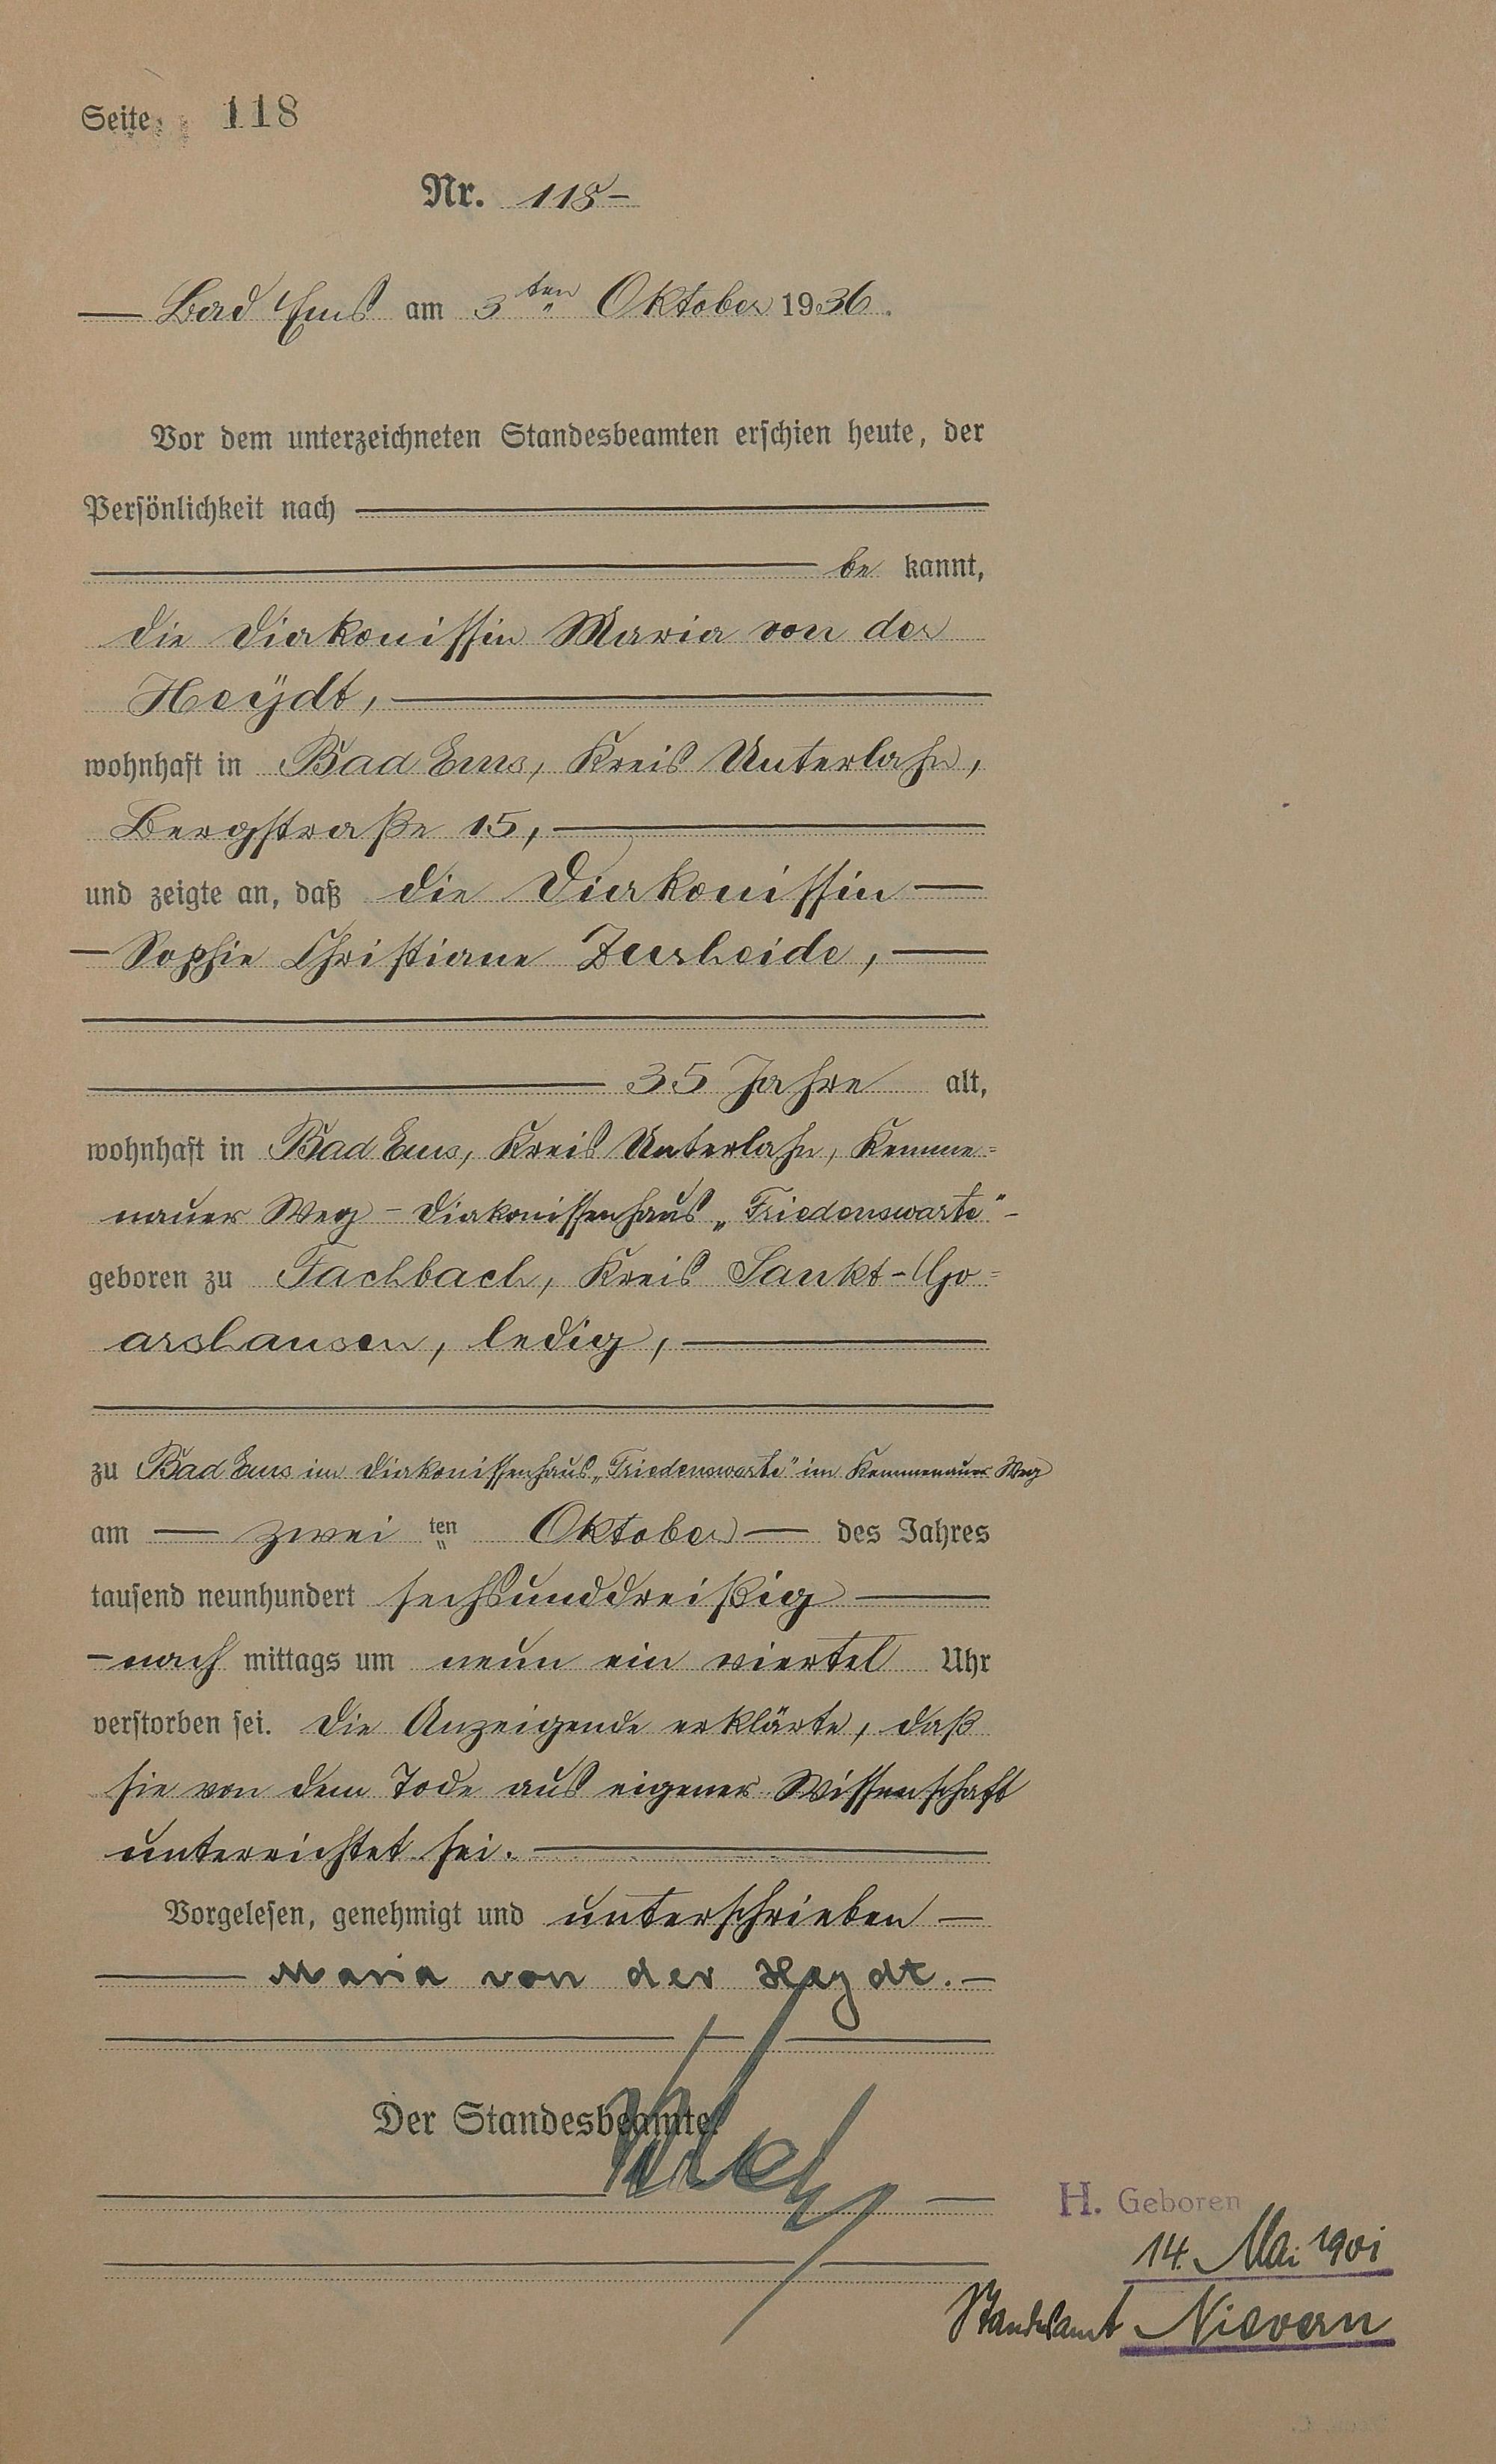 Seite 118
Nr. 118
Bad Ems am 3ten Oktober 1936.
Vor dem unterzeichneten Standesbeamten erschien heute, der
Persönlichkeit nach
be kannt,
die Diakonissin Maria von der
Heydt,
wohnhaft in Bad Ems, Kreis Unterlahn,
Bergstraße 15,
und zeigte an, daß die Diakonissin
Sophie Christiane Zurheide,
35 Jahre alt,
wohnhaft in Bad Ems, Kreis Unterlahn, Kemme=
nauer Weg - Diakonissenhaus „Friedenswarte" -
geboren zu Fachbach, Kreis Sankt-Go=
arshausen, ledig,
zu Bad Ems im Diakonissenhaus „Friedenswarte" im Kemmenauer Weg
am zwei ten Oktober des Jahres
tausend neunhundert sechsunddreißig
nach mittags um neun ein viertel Uhr
verstorben sei. Die Anzeigende erklärte, daß
sie von dem Tode aus eigener Wissenschaft
unterrichtet sei.
Vorgelesen, genehmigt und unterschrieben
Maria von der Heydt.
Der Standesbeamte
H. Geboren
14. Mai 1901
Standesamt Nievern